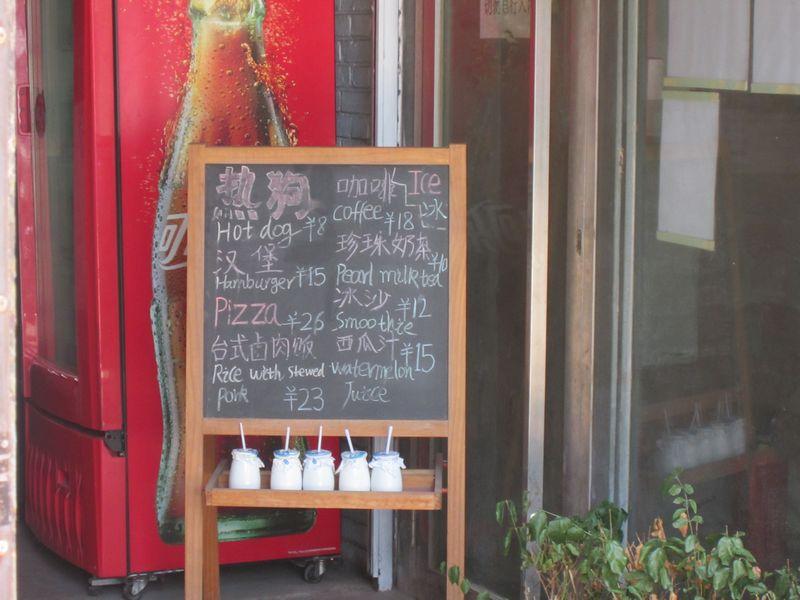 热狗
Hot dog ¥8
汉堡
Hamburger ¥15
Pizza ¥26
台式卤肉饭
Rice with stewed
pork ¥23
咖啡 Ice
coffee ¥18 冰
珍珠奶茶
Pearl milk tea ¥10
冰沙 ¥12
Smoothie
西瓜汁 ¥15
watermelon
Juice
可